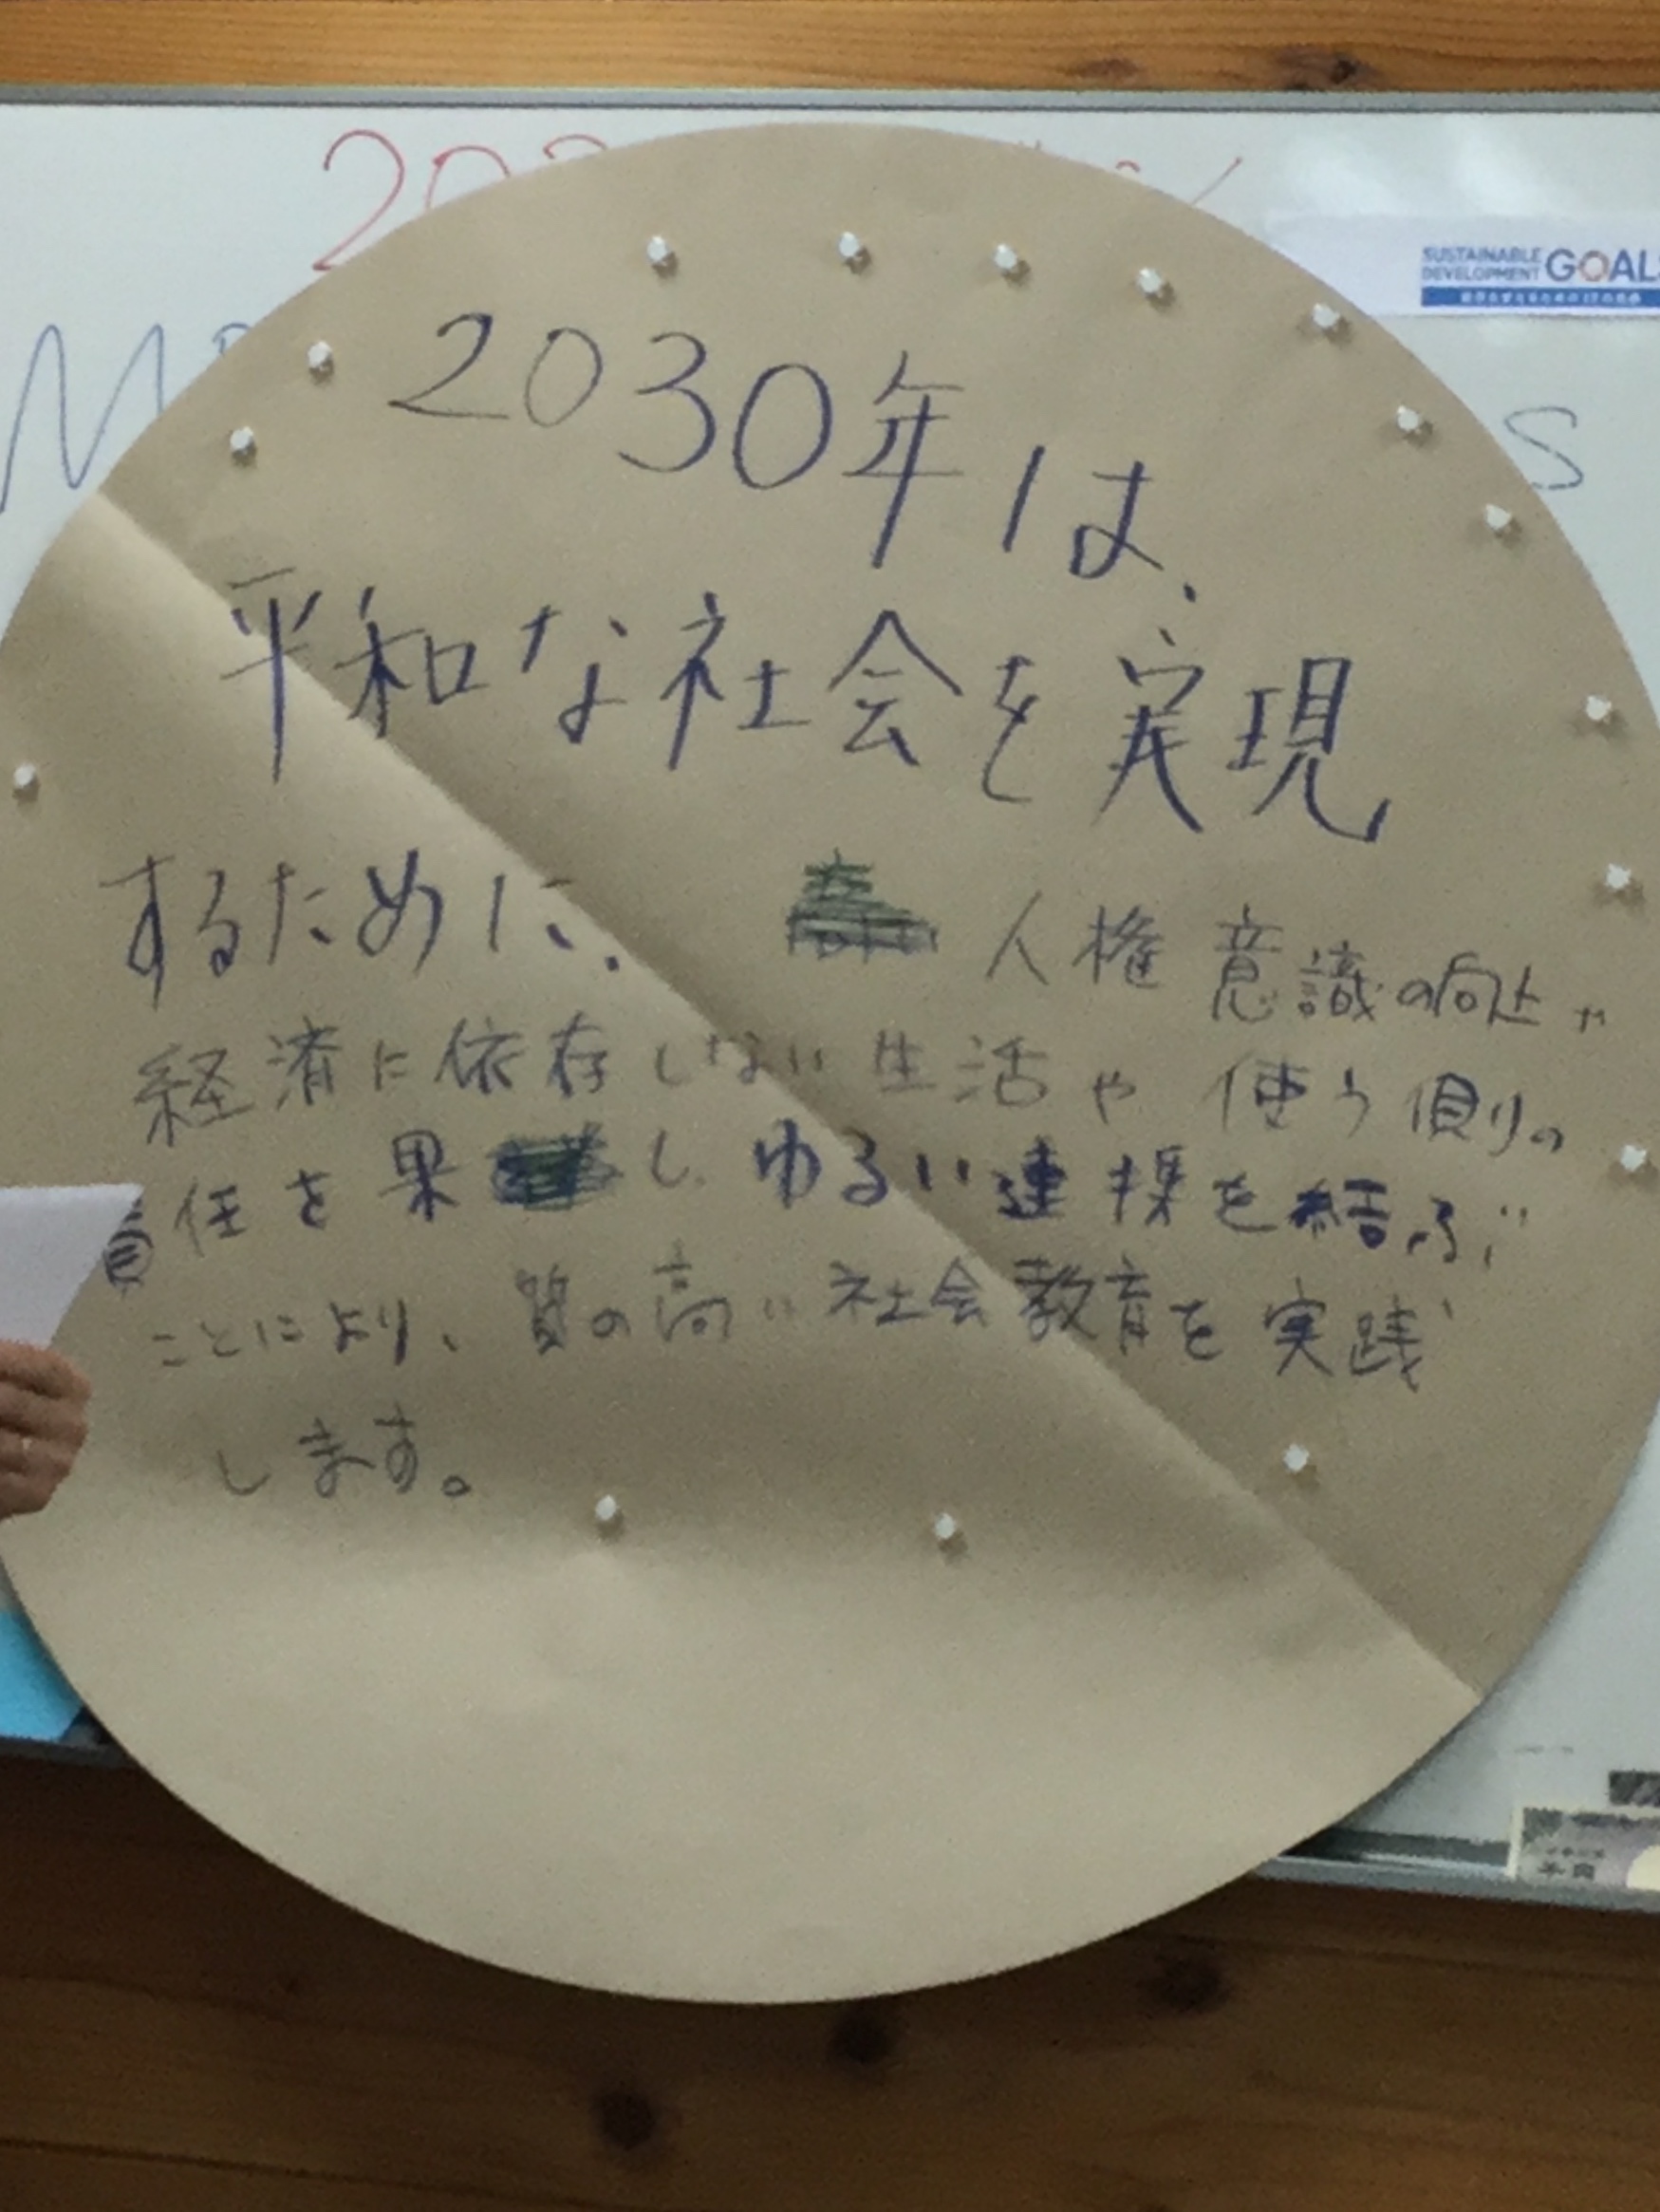 SUSTAINABLE
DEVELOPMENT GOALS
2030年は、
平和な社会を実現
するために、 人権意識の向上や
経済に依存しない生活や使う側の
責任を果し、ゆるい連携を結ぶ
ことにより、質の高い社会教育を実践
します。